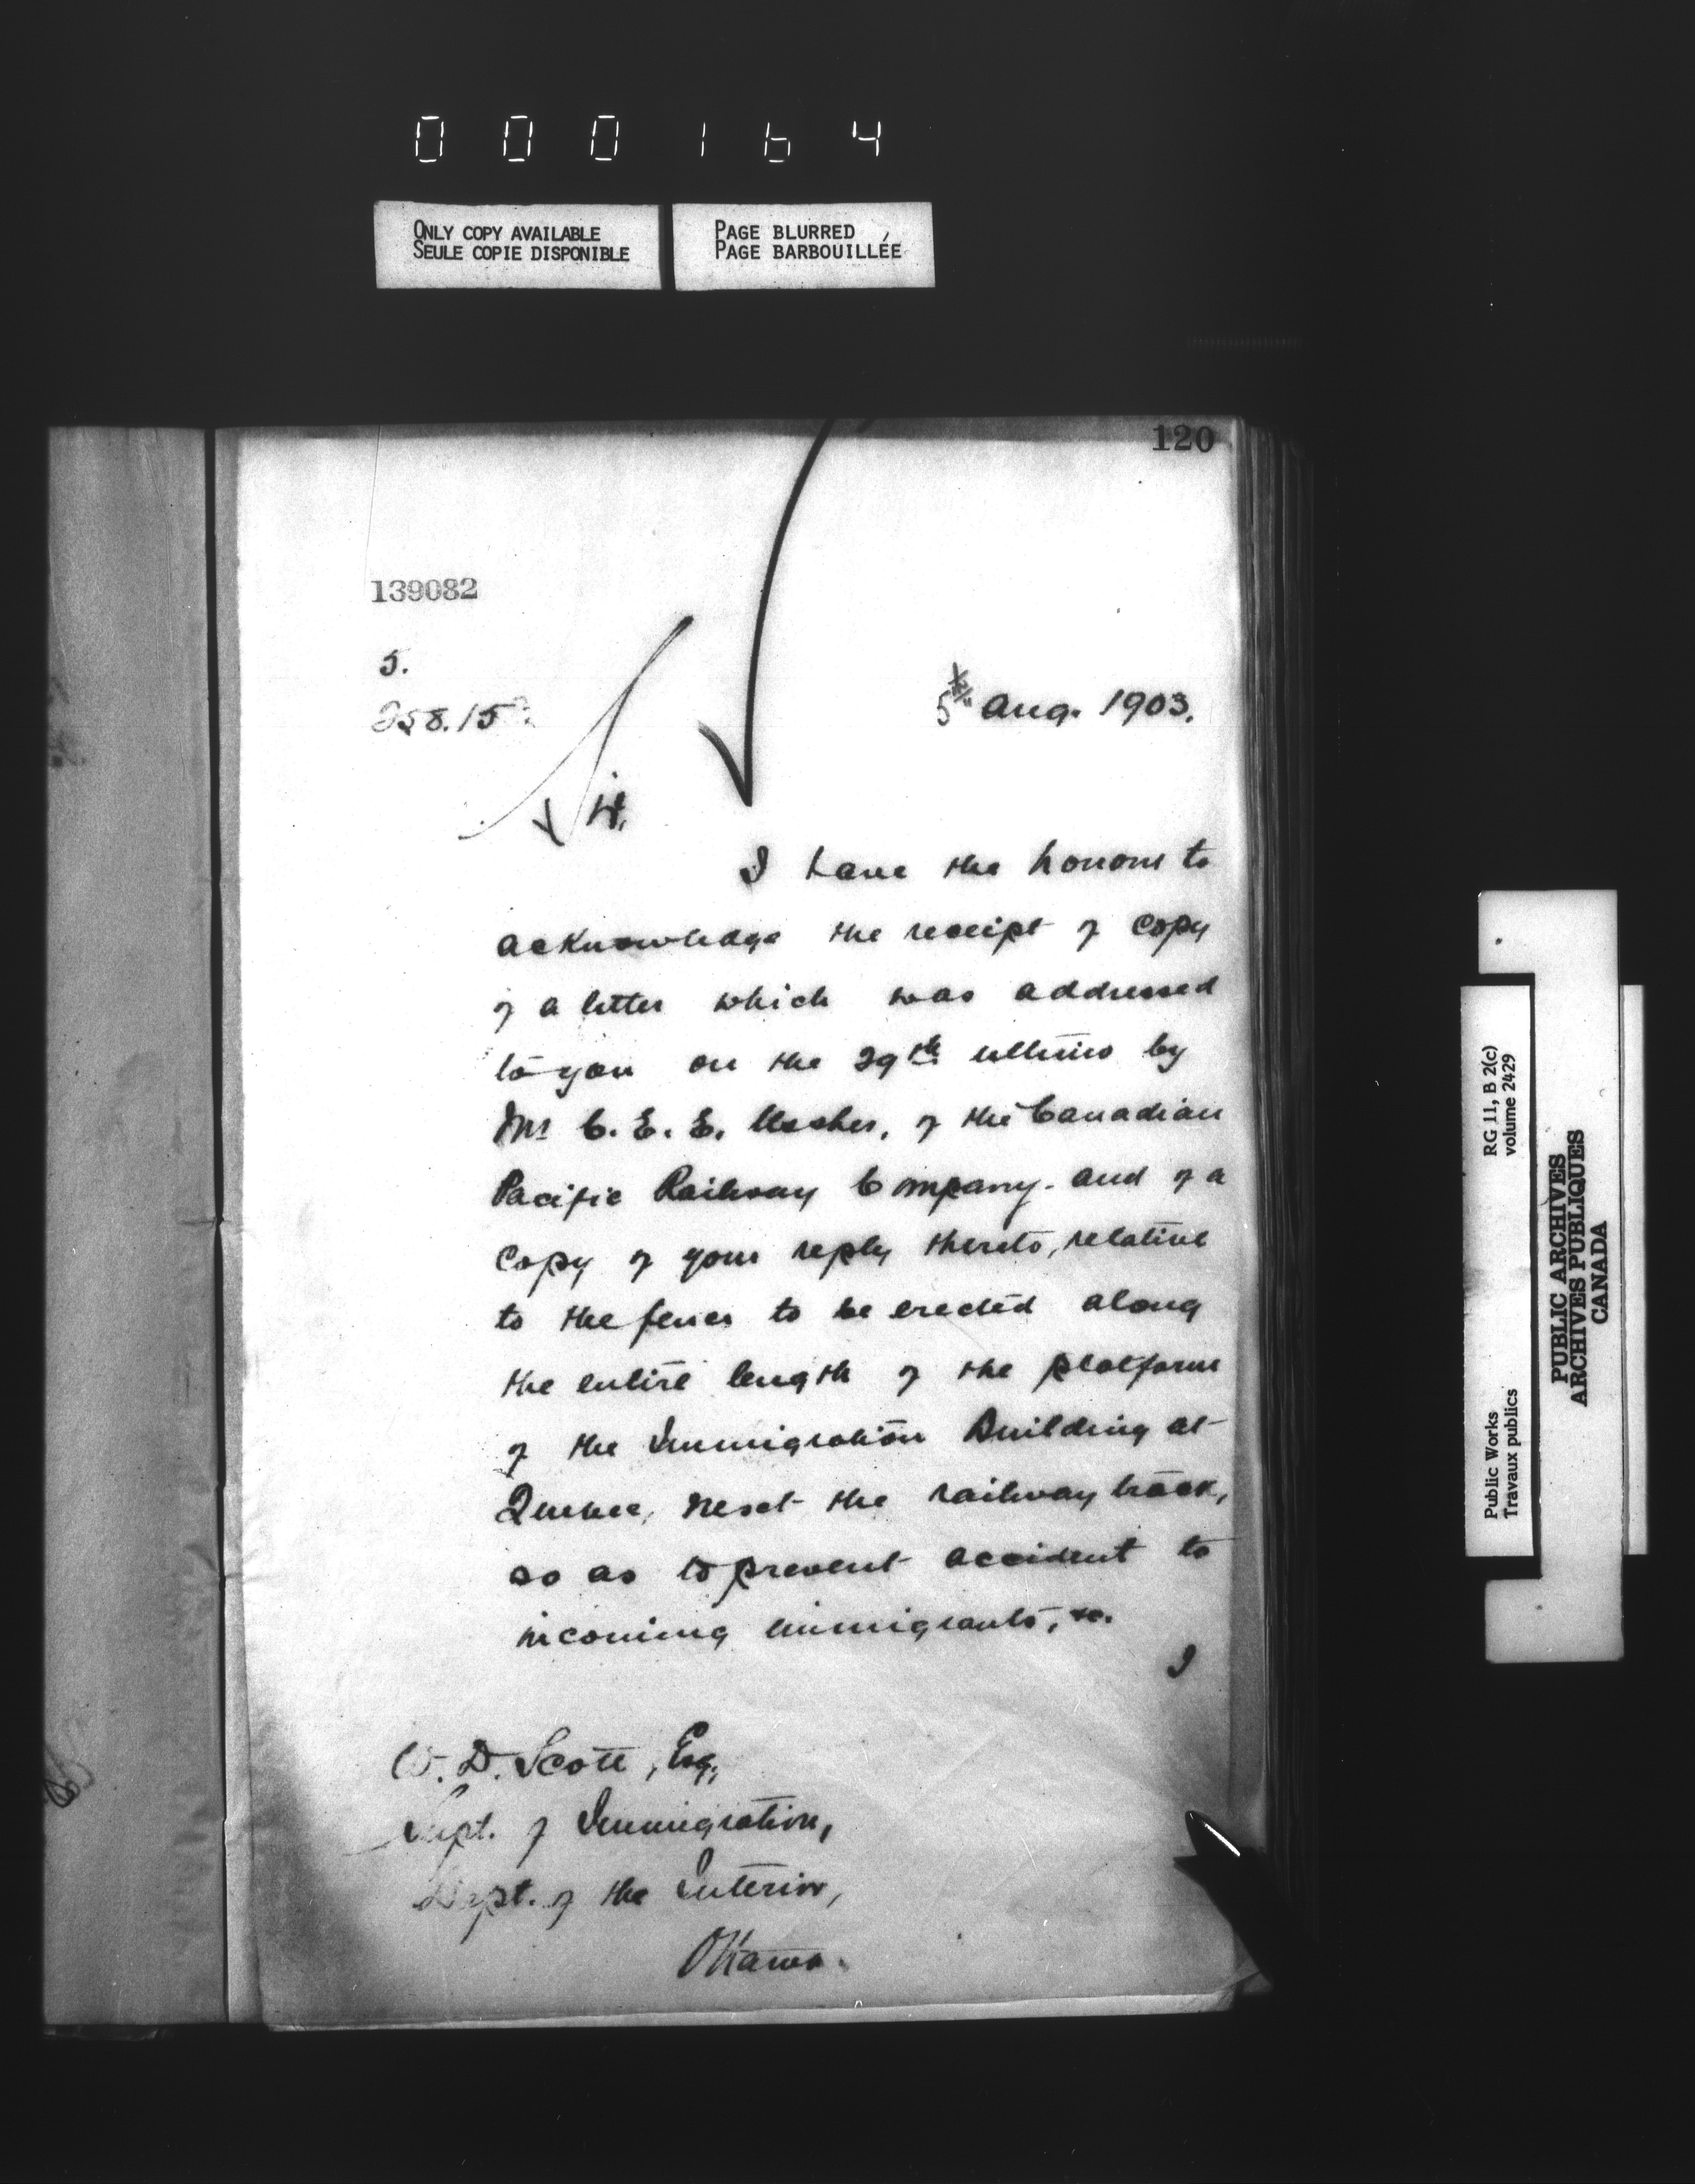 000164
ONLY COPY AVAILABLE
SEULE COPIE DISPONIBLE
PAGE BLURRED
PAGE BARBOUILLÉE
120
139082
5.
258.15
5th Aug. 1903.
I have the honour to
acknowledge the receipt of copy
of a letter which was addressed
to you on the 29th ultimo by
Mr C. E. E. Ussher, of the Canadian
Pacific Railway Company. and of a
copy of your reply thereto, relative
to the fence to be erected along
the entire length of the platform
of the Immigration Building at
Quebec, next the railway track,
so as to prevent accident to
incoming immigrants, &c.
I
W. D. Scott, Esq.,
Supt. of Immigration,
Dept. of the Interior,
Ottawa.
Public Works
Travaux publics
RG 11, B 2(c)
volume 2429
PUBLIC ARCHIVES
ARCHIVES PUBLIQUES
CANADA